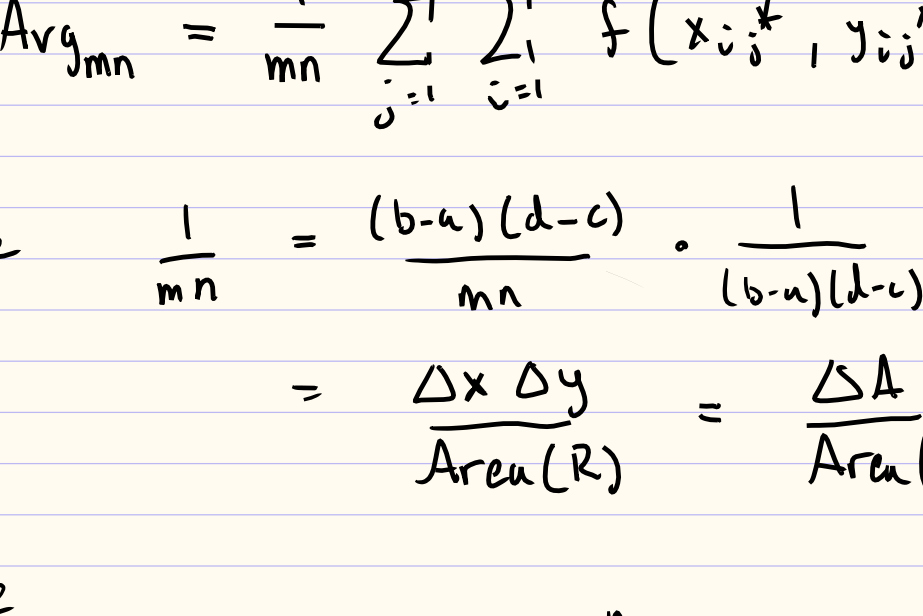 Avg_mn = 1/mn Σ_{j=1} Σ_{i=1} f(x_ij*, y_ij*
1/mn = (b-a)(d-c)/mn · 1/(b-a)(d-c)
= Δx Δy/Area(R) = ΔA/Area(